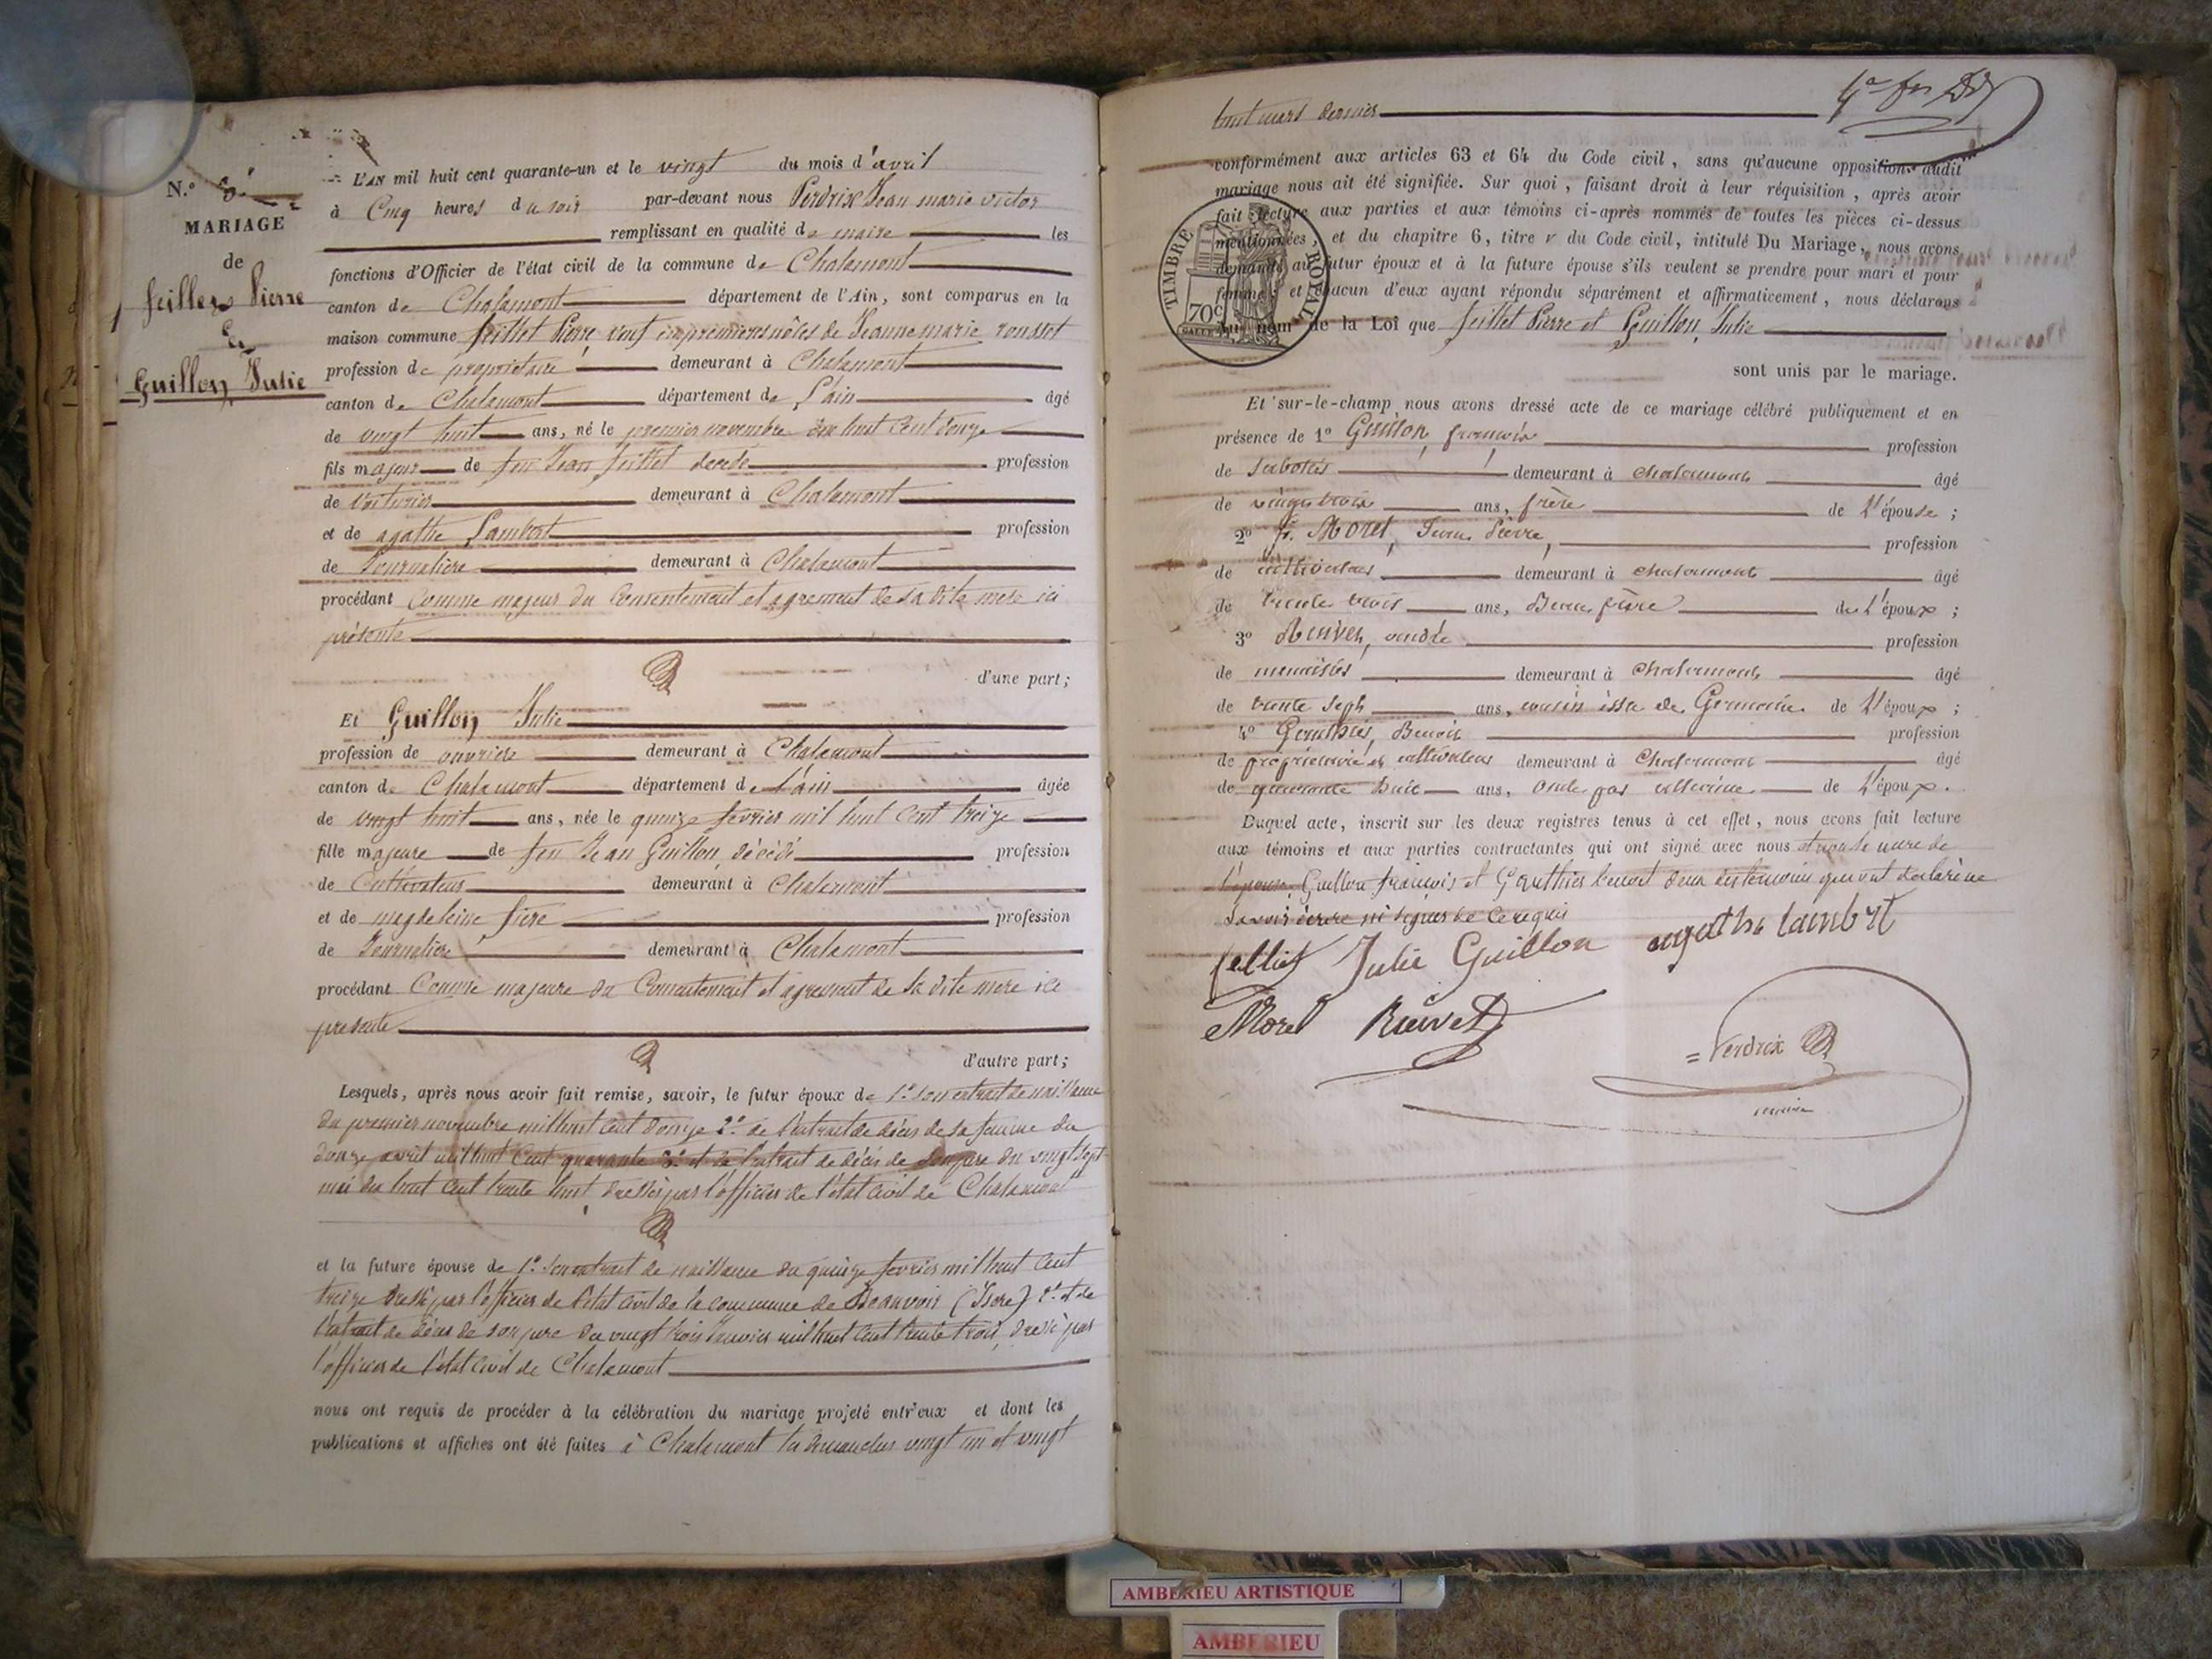 N.° 8
MARIAGE
de
feillet Pierre
&
Guillon Julie
L'AN mil huit cent quarante-un et le vingt du mois d'avril
à Cinq heures du soir par-devant nous Perdrix Jean marie victor
remplissant en qualité de maire les
fonctions d'Officier de l'état civil de la commune de Chalamont
canton de Chalamont département de l'Ain, sont comparus en la
maison commune feillet Pierre, veuf en premiers nôces de Jeanne marie rousset
profession de propriétaire demeurant à Chalamont
canton de Chalamont département de L'ain âgé
de vingt huit ans, né le premier novembre mil huit cent douze
fils majeur de feu Jean feillet décédé profession
de voiturier demeurant à Chalamont
et de agathe Lambert profession
de Journalière demeurant à Chalamont
procédant Comme majeur du Consentement et agrement de sa dite mere ici
présente
d'une part;
Et Guillon Julie
profession de ouvriere demeurant à Chalamont
canton de Chalamont département de L'ain âgée
de vingt huit ans, née le quinze fevrier mil huit Cent treize
fille majeure de feu Jean Guillon, décédé profession
de Cultivateur demeurant à Chalamont
et de magdeleine fiere profession
de Journaliere demeurant à Chalamont
procédant Comme majeure du Consentement et agrement de sa dite mere ici
presente
d'autre part;
Lesquels, après nous avoir fait remise, savoir, le futur époux de 1.° son extrait de naissance
du premier novembre mil huit cent douze 2.° de l'extrait de décès de sa femme du
douze avril mil huit Cent quarante 3.° et de l'extrait de décès de son pere du vingt sept
mai mil huit cent trente huit, dressés par l'officier de l'état civil de Chalamont
et la future épouse de 1.° son extrait de naissance du quinze fevrier mil huit Cent
treize dressé par l'officier de l'état civil de la commune de Beauvoir (Isere) 2.° et de
l'extrait de décès de son pere du vingt trois Janvier mil huit Cent trente trois, dressé par
l'officier de l'état civil de Chalamont
nous ont requis de procéder à la célébration du mariage projeté entr'eux et dont les
publications et affiches ont été faites à Chalamont les dimanches vingt un et vingt
huit mars dernier
conformément aux articles 63 et 64 du Code civil, sans qu'aucune opposition audit
mariage nous ait été signifiée. Sur quoi, faisant droit à leur réquisition, après avoir
fait lecture aux parties et aux témoins ci-après nommés de toutes les pièces ci-dessus
mentionnées, et du chapitre 6, titre v du Code civil, intitulé Du Mariage, nous avons
demandé au futur époux et à la future épouse s'ils veulent se prendre pour mari et pour
femme; et chacun d'eux ayant répondu séparément et affirmativement, nous déclarons
Au nom de la Loi que feillet Pierre et Guillon Julie
TIMBRE ROYAL
70c
sont unis par le mariage.
Et sur-le-champ nous avons dressé acte de ce mariage célébré publiquement et en
présence de 1° Guillon, françois profession
de sabotier demeurant à chalamont âgé
de vingt trois ans, frère de L'épouse;
2° Morel, Pierre, profession
de cultivateur demeurant à chalamont âgé
de trente trois ans, Beau frère de L'époux;
3° Reuvet, andré profession
de menuisier demeurant à chalamont âgé
de trente sept ans, cousin issu de Germain de L'époux;
4° Gauthier, Benoit profession
de propriétaire et cultivateur demeurant à Chalamont âgé
de quarante huit ans, oncle par alliance de L'époux.
Duquel acte, inscrit sur les deux registres tenus à cet effet, nous avons fait lecture
aux témoins et aux parties contractantes qui ont signé avec nous et non la mere de
l'épouse, Guillon françois et Gauthier benoit deux des temoins qui ont declaré ne
savoir écrire ni signer de ce requis
felliet Julie Guillon agathe lambert
Morel Reuvet
Perdrix
maire
AMBERIEU ARTISTIQUE
AMBERIEU